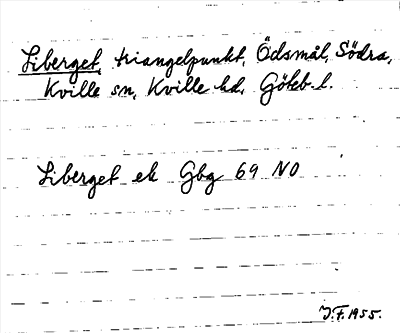 Liberget, triangelpunkt, Ödsmål, Södra,
Kville sn, Kville hd, Göteb. l.
Liberget ek Gbg 69 NO
J.F. 1955.